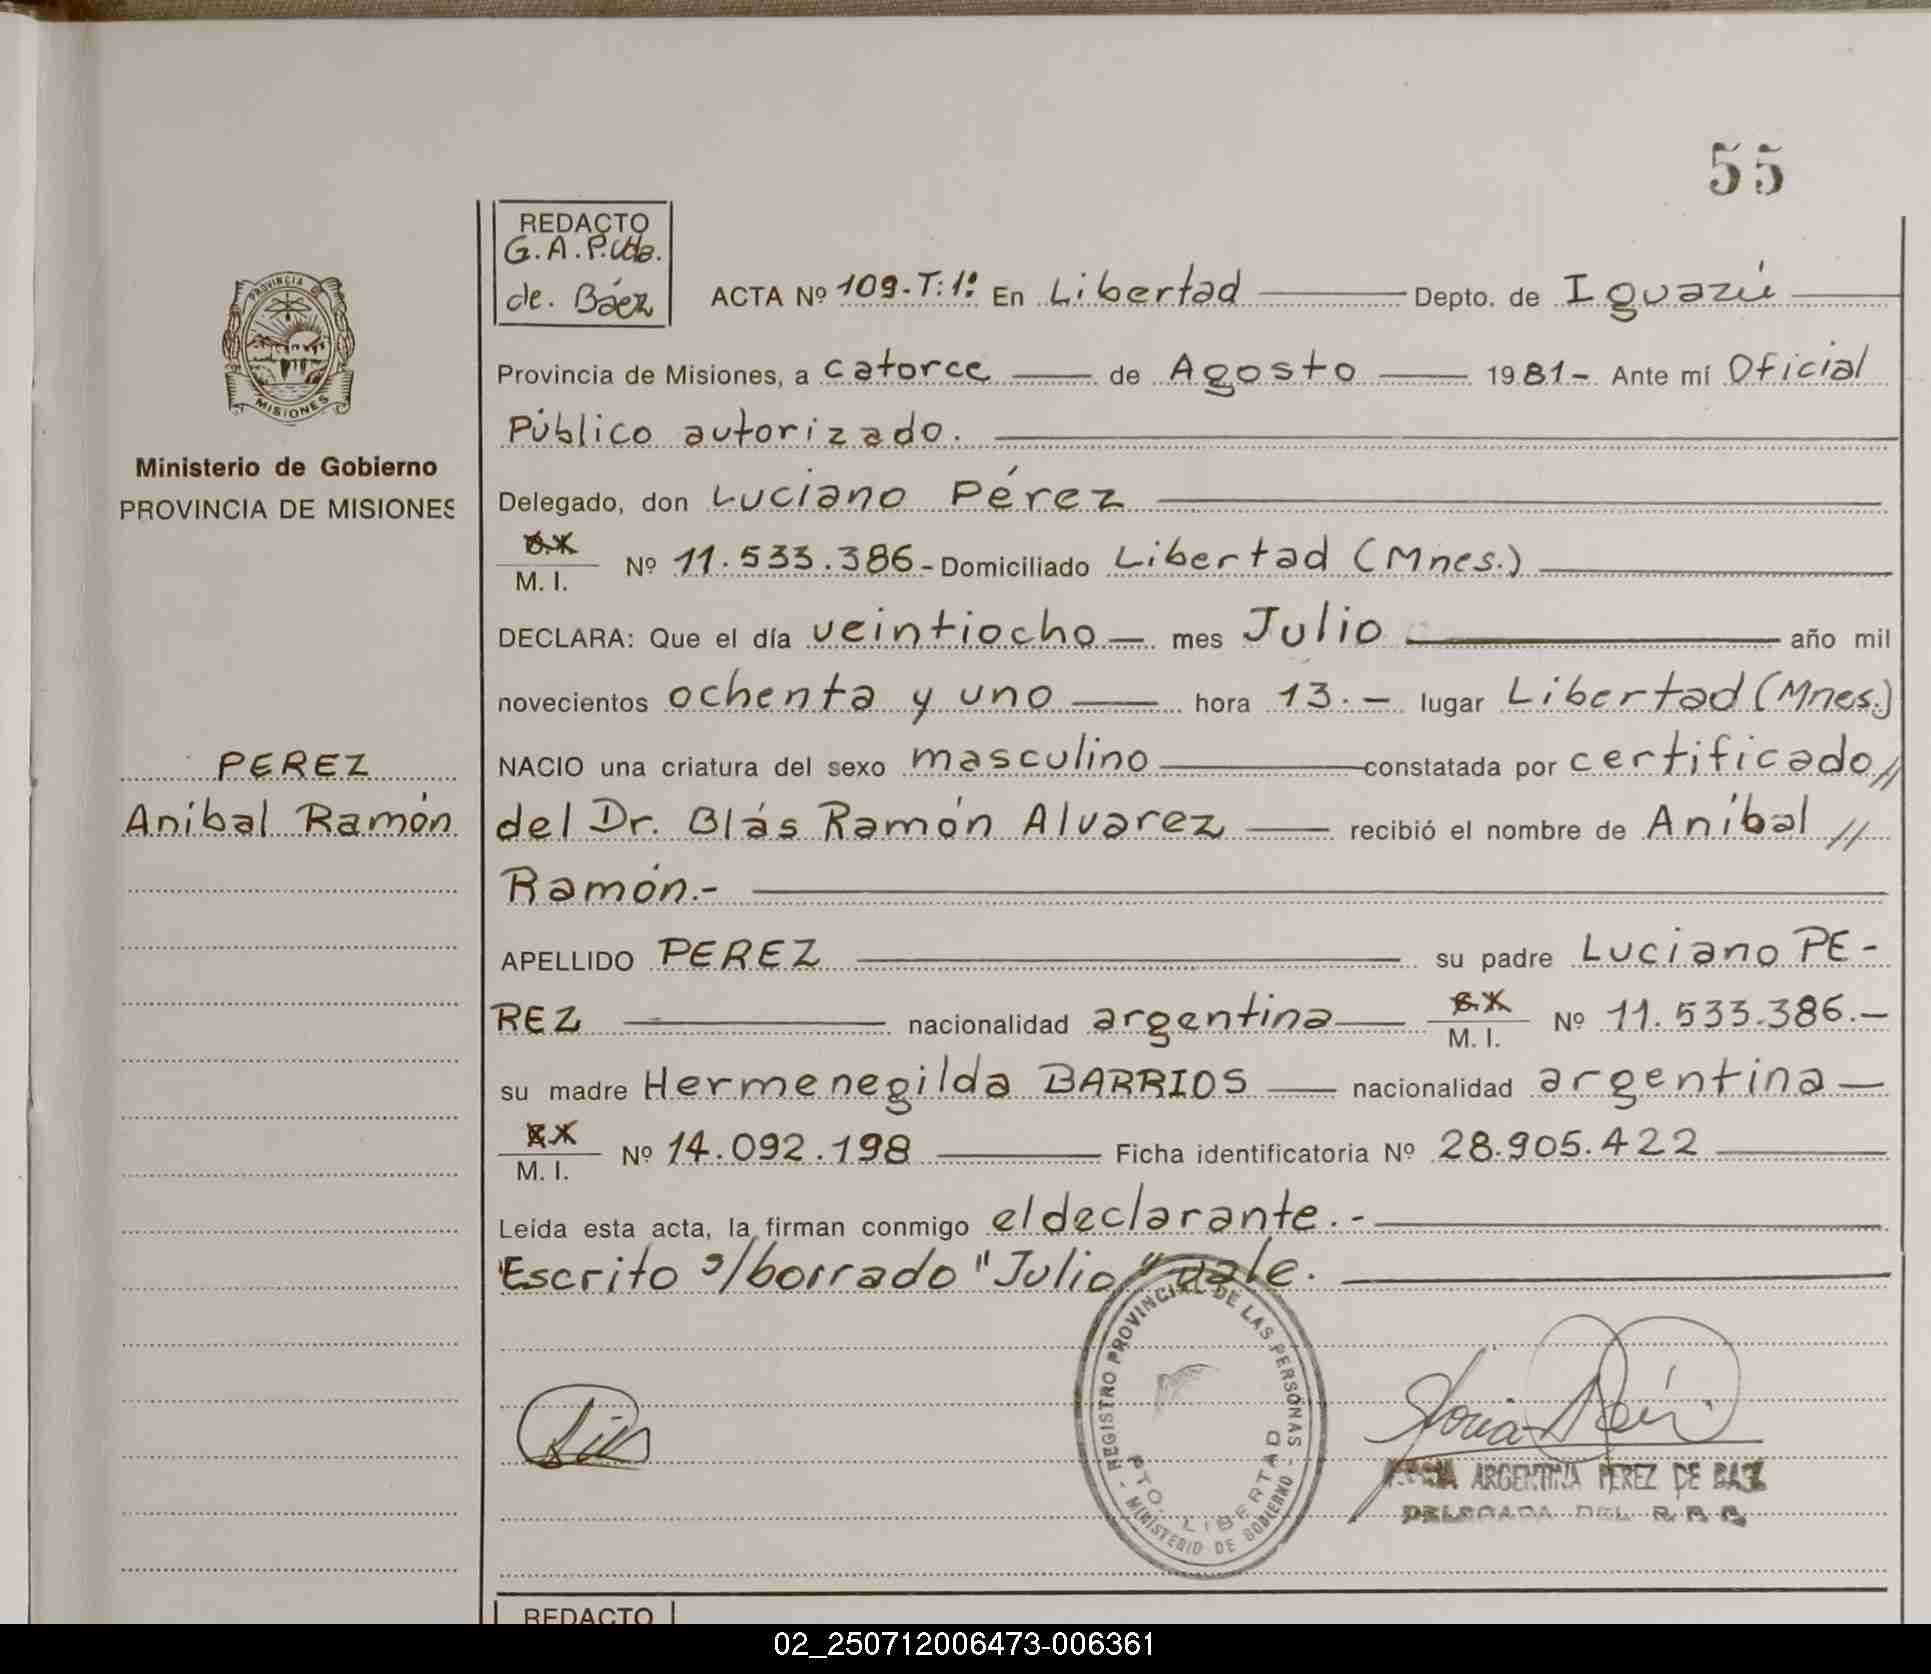 55
REDACTO
G.A.P. Vda.
de. Báez
ACTA Nº 109-T:1º En Libertad Depto. de Iguazú
Provincia de Misiones, a catorce de Agosto 1981- Ante mí Oficial
Público autorizado.
Ministerio de Gobierno
PROVINCIA DE MISIONES
Delegado, don Luciano Pérez
M. I. Nº 11.533.386- Domiciliado Libertad (Mnes.)
DECLARA: Que el día veintiocho mes Julio año mil
novecientos ochenta y uno hora 13.- lugar Libertad (Mnes.)
PEREZ
Aníbal Ramón
NACIO una criatura del sexo masculino constatada por certificado//
del Dr. Blás Ramón Alvarez recibió el nombre de Aníbal //
Ramón.-
APELLIDO PEREZ su padre Luciano PE-
REZ nacionalidad argentina M. I. Nº 11.533.386.-
su madre Hermenegilda BARRIOS nacionalidad argentina
M. I. Nº 14.092.198 Ficha identificatoria Nº 28.905.422
Leída esta acta, la firman conmigo el declarante.-
Escrito s/borrado "Julio" vale.
REGISTRO PROVINCIAL DE LAS PERSONAS
- MINISTERIO DE GOBIERNO -
PTO. LIBERTAD
ARGENTINA PEREZ DE BAEZ
DELEGADA DEL
REDACTO
PROVINCIA DE
MISIONES
02_250712006473-006361